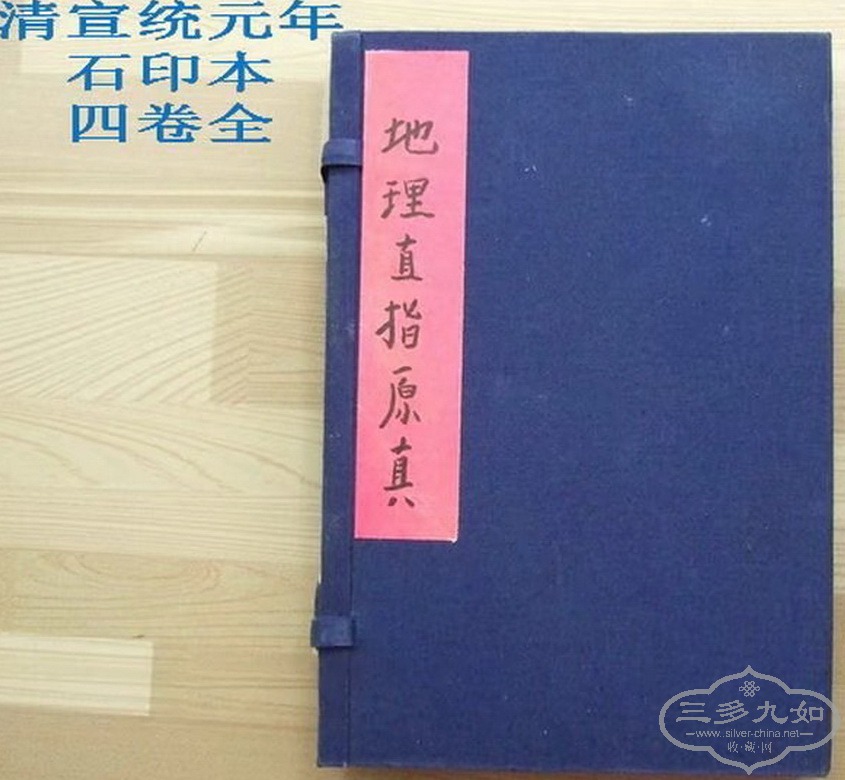 清宣统元年
石印本
四卷全
地理直指原真
三多九如
www.silver-china.net
收·藏·网